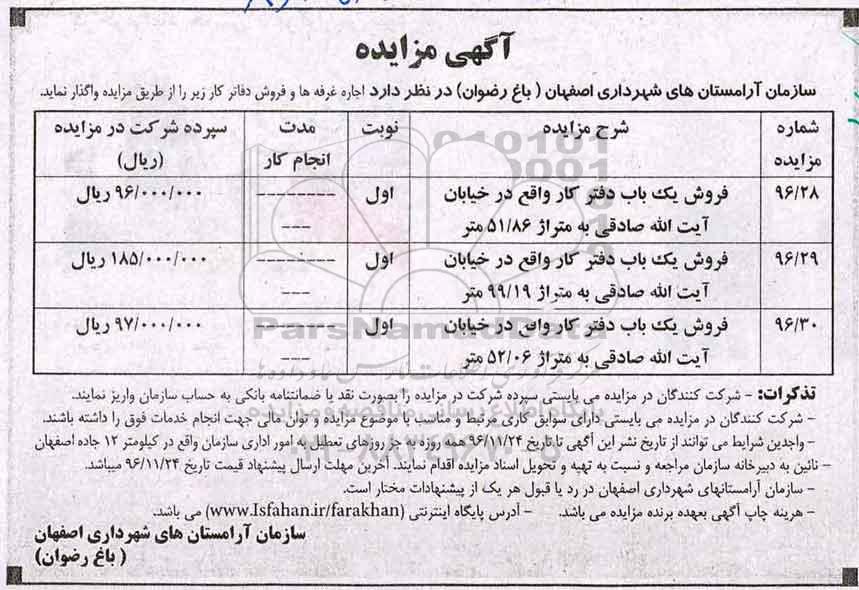 آگهی مزایده
سازمان آرامستان های شهرداری اصفهان ( باغ رضوان) در نظر دارد اجاره غرفه ها و فروش دفاتر کار زیر را از طریق مزایده واگذار نماید.
شماره مزایده	شرح مزایده	نوبت	مدت انجام کار	سپرده شرکت در مزایده (ریال)
۹۶/۲۸	فروش یک باب دفتر کار واقع در خیابان	اول	---------	۹۶/۰۰۰/۰۰۰ ریال
آیت الله صادقی به متراژ ۵۱/۸۶ متر	---
۹۶/۲۹	فروش یک باب دفتر کار واقع در خیابان	اول	---------	۱۸۵/۰۰۰/۰۰۰ ریال
آیت الله صادقی به متراژ ۹۹/۱۹ متر	---
۹۶/۳۰	فروش یک باب دفتر کار واقع در خیابان	اول	---------	۹۷/۰۰۰/۰۰۰ ریال
آیت الله صادقی به متراژ ۵۲/۰۶ متر	---
ParsNamadData
تذکرات: - شرکت کنندگان در مزایده می بایستی سپرده شرکت در مزایده را بصورت نقد یا ضمانتنامه بانکی به حساب سازمان واریز نمایند.
- شرکت کنندگان در مزایده می بایستی دارای سوابق کاری مرتبط و مناسب با موضوع مزایده و توان مالی جهت انجام خدمات فوق را داشته باشند.
- واجدین شرایط می توانند از تاریخ نشر این آگهی تا تاریخ ۹۶/۱۱/۲۴ همه روزه به جز روزهای تعطیل به امور اداری سازمان واقع در کیلومتر ۱۲ جاده اصفهان
- نائین به دبیرخانه سازمان مراجعه و نسبت به تهیه و تحویل اسناد مزایده اقدام نمایند. آخرین مهلت ارسال پیشنهاد قیمت تاریخ ۹۶/۱۱/۲۴ میباشد.
- سازمان آرامستانهای شهرداری اصفهان در رد یا قبول هر یک از پیشنهادات مختار است.
- هزینه چاپ آگهی بعهده برنده مزایده می باشد. - آدرس پایگاه اینترنتی (www.Isfahan.ir/farakhan) می باشد.
سازمان آرامستان های شهرداری اصفهان
( باغ رضوان)